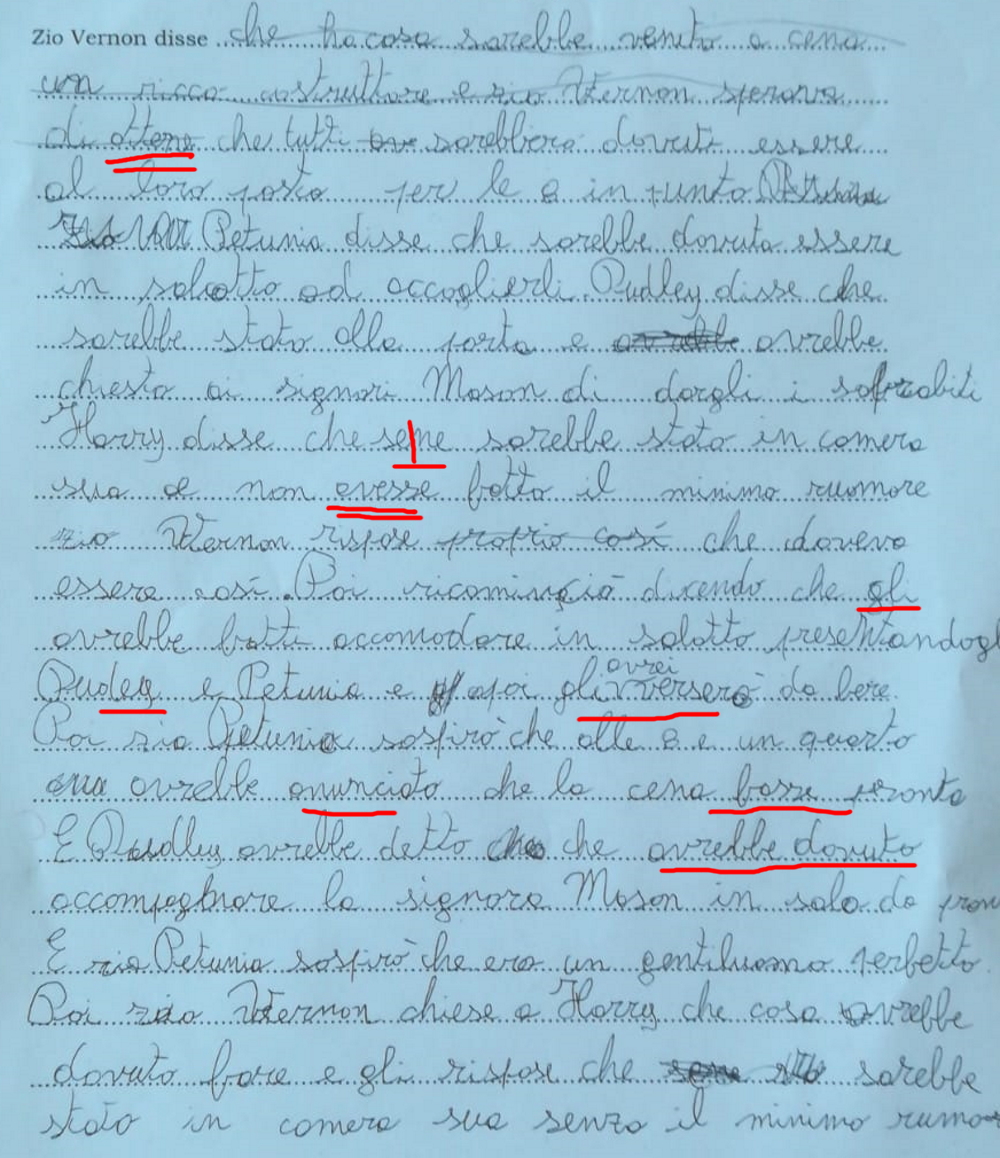 Zio Vernon disse che ha casa sarebbe venuto a cena
un ricco costruttore e zio Vernon sperava
di ottene che tutti sarebbero dovuti essere
al loro posto per le 8 in punto
Petunia disse che sarebbe dovuta essere
in salotto ad accoglierli. Dudley disse che
sarebbe stato alla porta e avrebbe
chiesto ai signori Mason di dargli i soprabiti
Harry disse che sene sarebbe stato in camera
sua e non avesse fatto il minimo rumore
zio Vernon rispose proprio così che doveva
essere così. Poi ricominciò dicendo che gli
avrebbe fatti accomodare in salotto presentandogl
Dudey e Petunia e poi gli avrei verserò da bere.
Poi zia Petunia sospirò che alle 8 e un quarto
avrebbe anunciato che la cena fosse pronta
E Dudley avrebbe detto che avrebbe dovuto
accompagnare la signora Mason in sala da pran
E zia Petunia sospirò che era un gentiluomo perfetto.
Poi zio Vernon chiese a Harry che cosa avrebbe
dovuto fare e gli rispose che sarebbe
stato in camera sua senza il minimo rumo